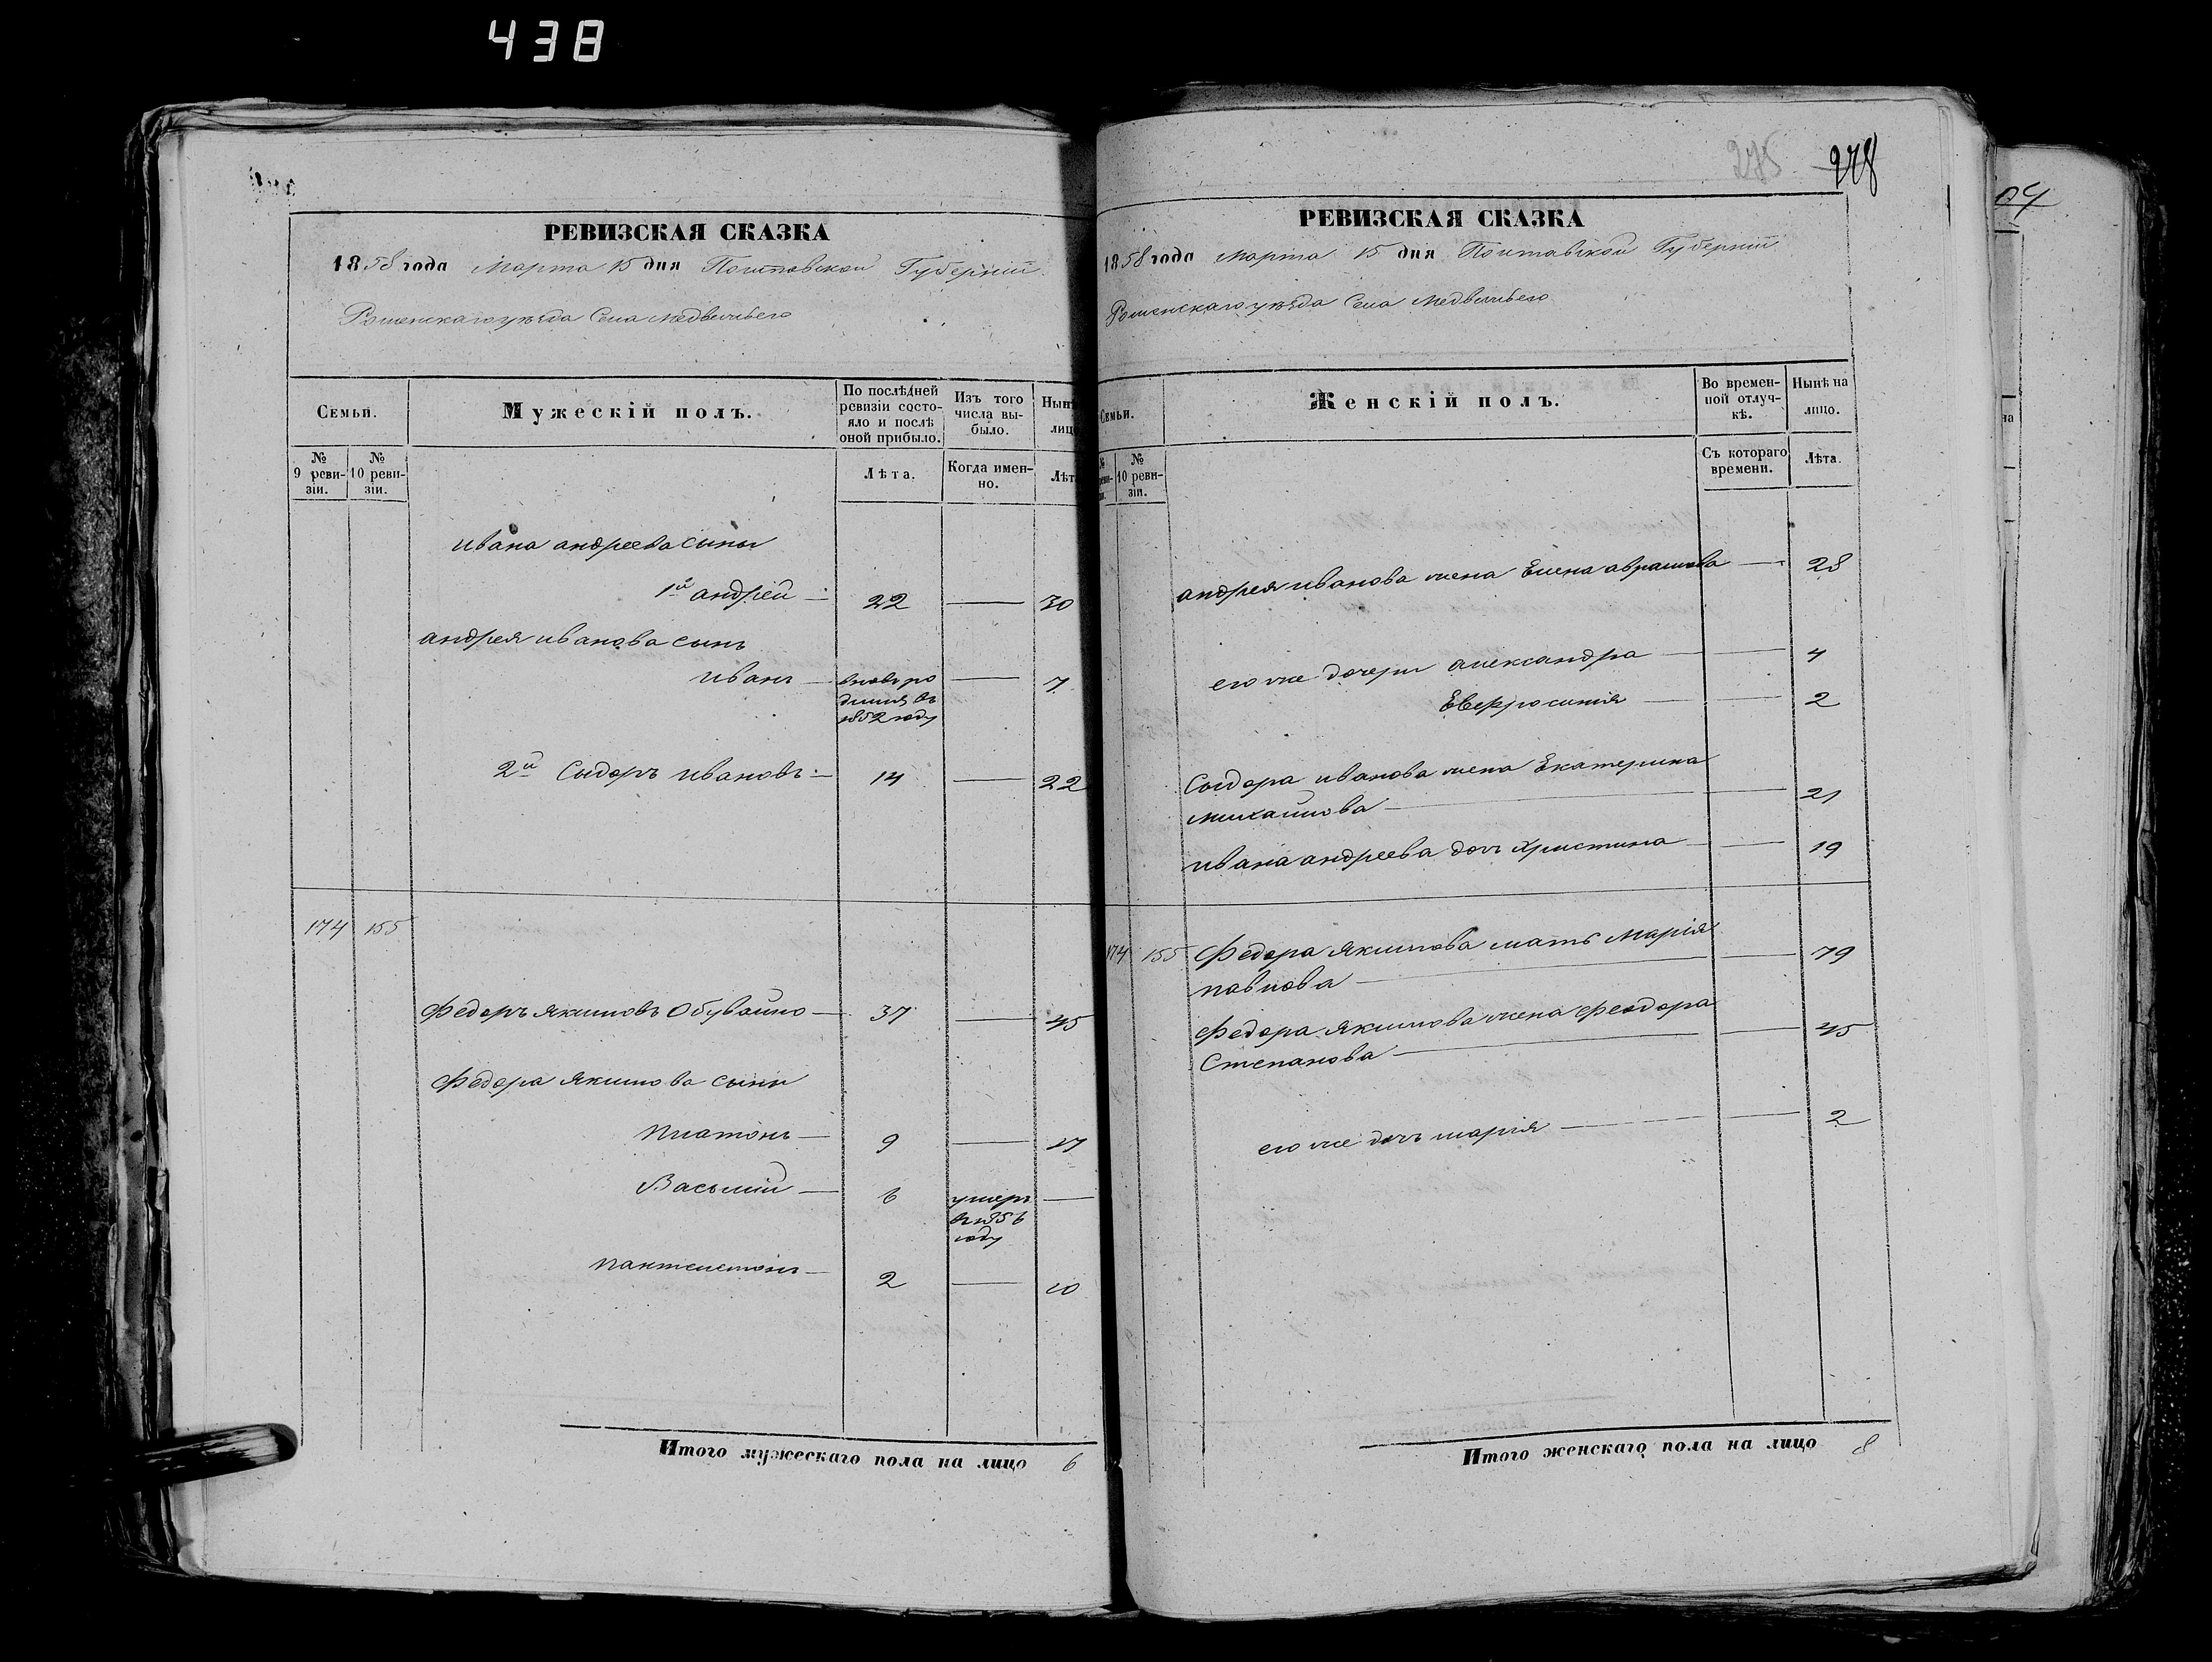 438
РЕВИЗСКАЯ СКАЗКА
1858 года Марта 15 дня Полтавской Губерніи
Роменскаго уѣзда Села Медвежьего
Семьи.
Мужескій полъ.
По послѣдней ревизіи состояло и послѣ оной прибыло.
Изъ того числа выбыло.
Нынѣ
лицо
№ 9 ревизіи.
№ 10 ревизіи.
Лѣта.
Когда именно.
Лѣт
Ивана андреева сыны
1й андрей — 22 — 30
андрея иванова сынъ
иванъ — вновь родился въ 1852 году — 7
2й Сыдоръ ивановъ — 14 — 22
174 155
Федоръ Якимовъ Обувайло — 37 — 45
Федора Якимова сыны
Платонъ — 9 — 17
Васылий — 6 умеръ въ 1856 году —
Пантелемонъ — 2 — 10
Итого мужескаго пола на лицо 6
275 278
РЕВИЗСКАЯ СКАЗКА
1858 года Марта 15 дня Полтавской Губерніи
Роменскаго уѣзда Села Медвежьего
Семьи.
Женскій полъ.
Во временной отлучкѣ.
Нынѣ на лицо.
№ 10 ревизіи.
Съ котораго времени.
Лѣта.
андрея иванова жена Елена аврамова — 28
его же дочери александра — 4
Евфросинія — 2
Сыдора иванова жена Екатерина
михайлова — 21
ивана андреева дочь Христина — 19
174 155 Федора Якимова мать Марія
павлова — 79
Федора Якимова жена Феодора
Степанова — 45
его же дочь марія — 2
Итого женскаго пола на лицо 8
04
на